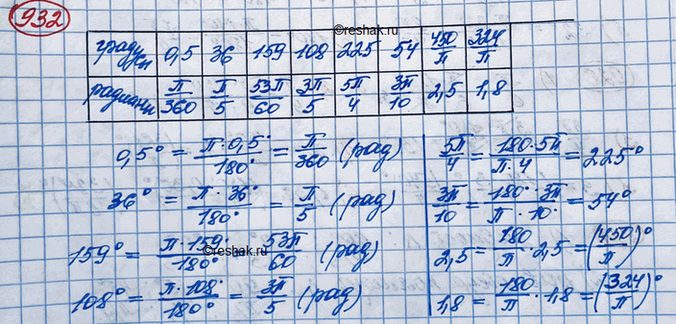 932
©reshak.ru
градусы 0,5 36 159 108 225 54 450/π 324/π
радианы π/360 π/5 53π/60 3π/5 5π/4 3π/10 2,5 1,8
0,5° = π·0,5°/180° = π/360 (рад)
36° = π·36°/180° = π/5 (рад)
159° = π·159°/180° = 53π/60 (рад)
©reshak.ru
108° = π·108°/180° = 3π/5 (рад)
5π/4 = 180·5π/π·4 = 225°
3π/10 = 180°·3π/π·10° = 54°
2,5 = 180/π · 2,5 = (450/π)°
1,8 = 180/π · 1,8 = (324/π)°